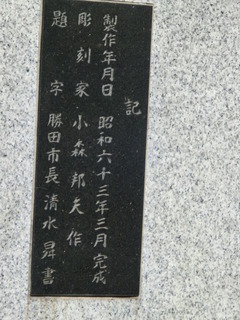 記
製作年月日 昭和六十三年三月完成
彫刻家 小森邦夫作
題字 勝田市長 清水昇書